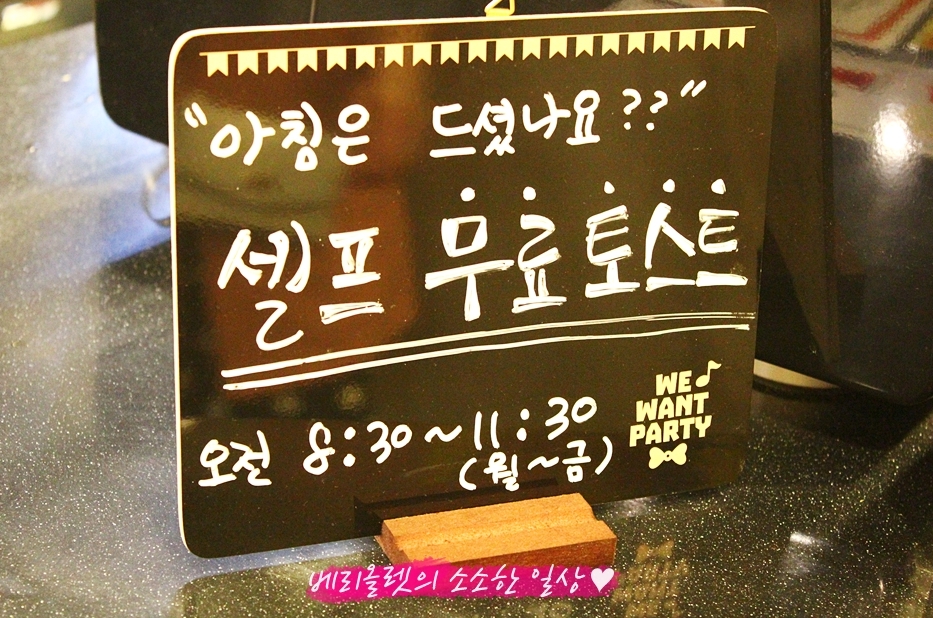 "아침은 드셨나요??"
셀프 무료토스트
오전 8:30~11:30
(월~금)
WE
WANT
PARTY
베리올렛의 소소한 일상♥